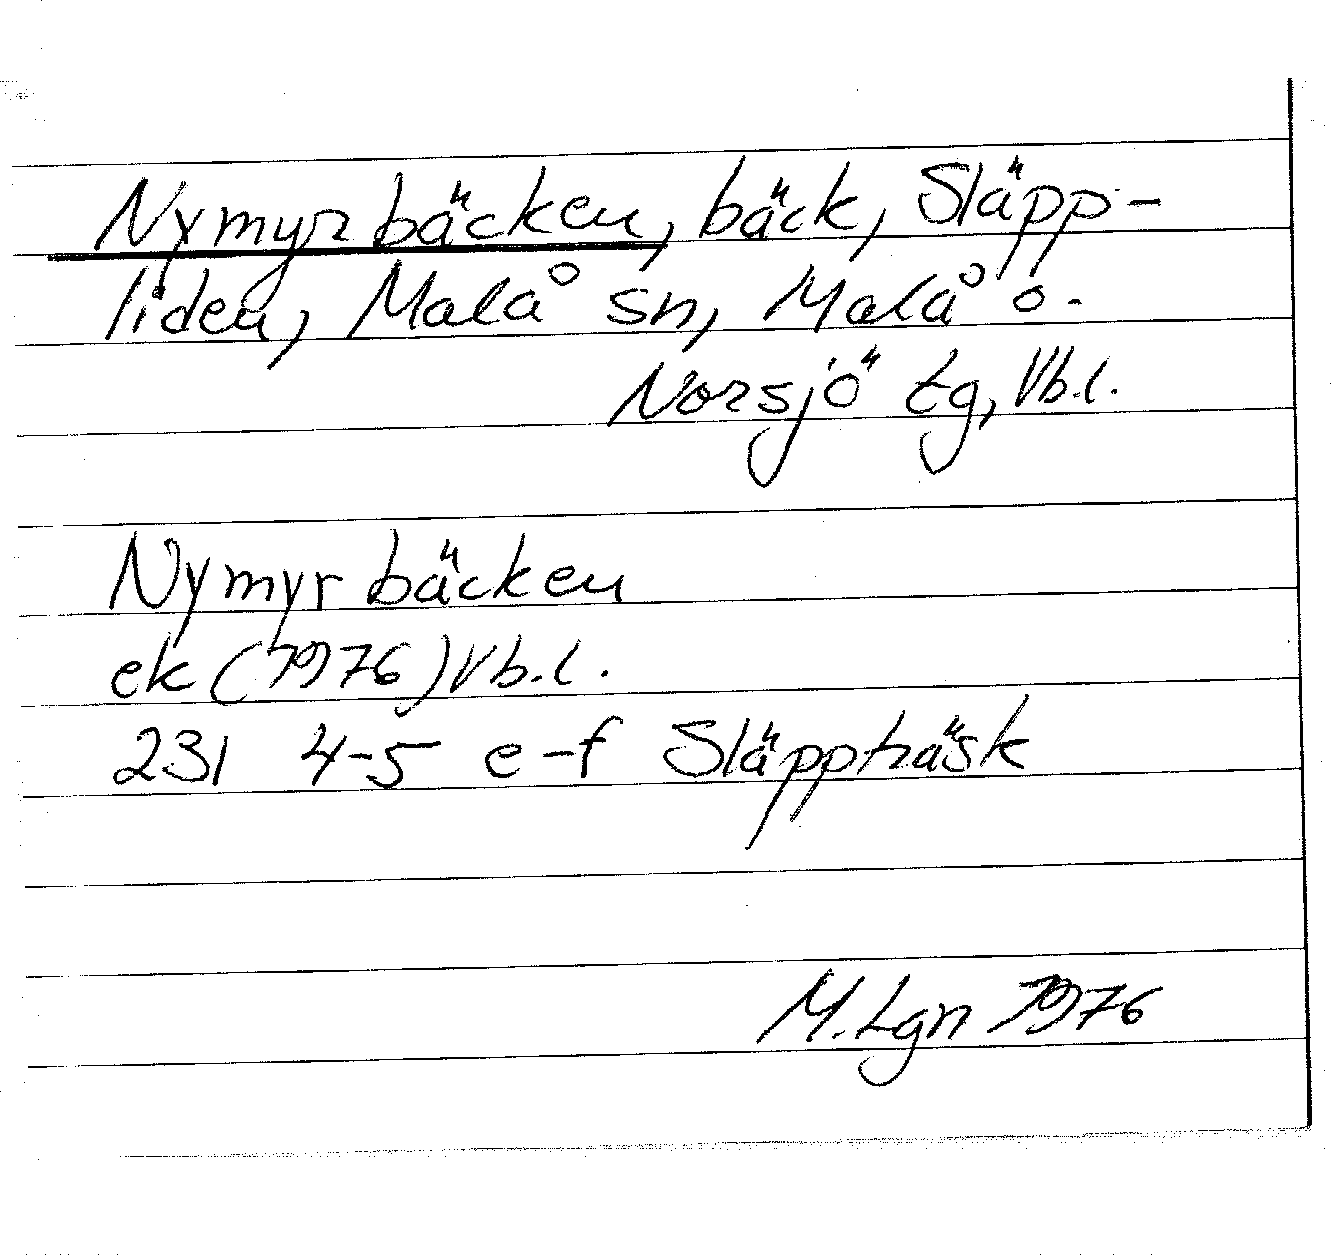 Nymyrbäcken, bäck, Släpp-
liden, Malå sn, Malå o.
Norsjö tg, Vb.l.
Nymyrbäcken
ek (1976) Vb.l.
231 4-5 e-f Släppträsk
M. Lgn 1976